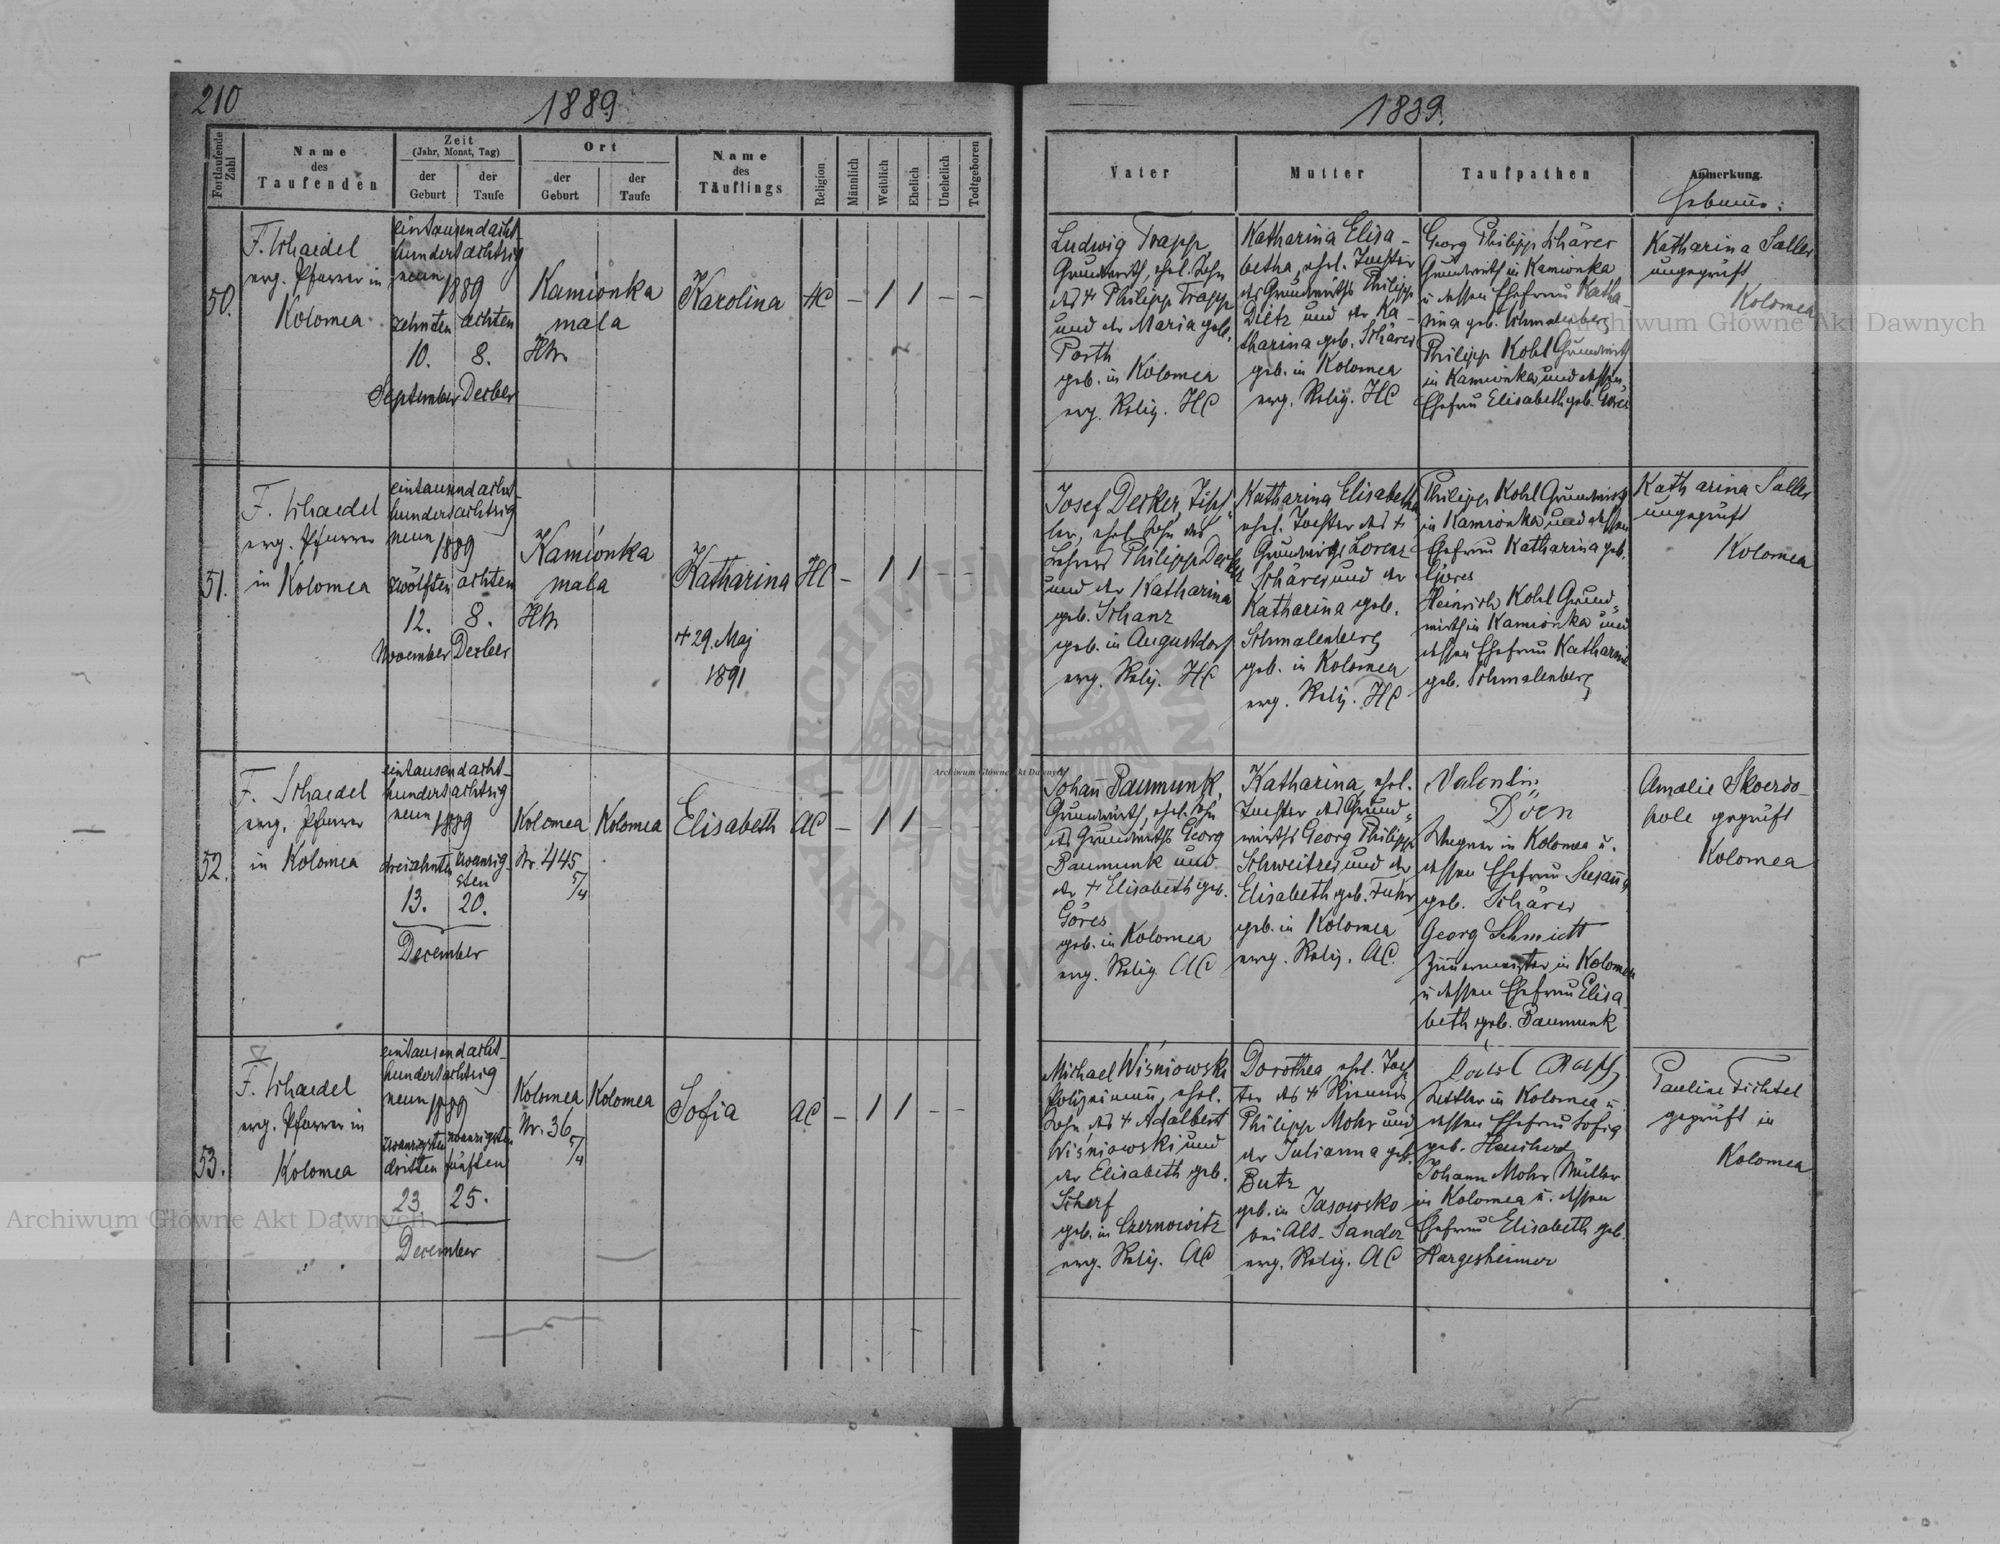 210
1889
Fortlaufende Zahl
Name
des
Taufenden
Zeit
(Jahr, Monat, Tag)
der
Geburt
der
Taufe
Ort
der
Geburt
der
Taufe
Name
des
Täuflings
Religion
Männlich
Weiblich
Ehelich
Unehelich
Todtgeboren
50.
F. Schaedel
evg. Pfarrer in
Kolomea
eintausendacht
hundertachtzig
neun
1889
zehnten achten
10. 8.
September Decber
Kamionka
mala
Karolina
HC
– 1 1 – –
51.
F. Schaedel
evg. Pfarrer
in Kolomea
eintausendacht-
hundertachtzig
neun
1889
zwölften achten
12. 8.
November Decber
Kamionka
mala
Katharina
+ 29. Maj
1891
HC
– 1 1 – –
52.
F. Schaedel
evg. Pfarrer
in Kolomea
eintausendacht-
hundertachtzig
neun
1889
dreizehnten zwanzig-
sten
13. 20.
December
Kolomea
Nr. 445
5/4
Kolomea
Elisabeth
AC
– 1 1 – –
53.
F. Schaedel
evg. Pfarrer in
Kolomea
eintausendacht-
hundertachtzig
neun
1889
zwanzigsten zwanzigsten
dritten fünften
23. 25.
December
Kolomea
Nr. 36
5/4
Kolomea
Sofia
AC
– 1 1 – –
1889.
Vater
Mutter
Taufpathen
Anmerkung
Hebamme:
Ludwig Trapp
Grundwirth, ehel. Sohn
des + Philipp Trapp
und der Maria geb.
Porth
geb. in Kolomea
evg. Relig. HC
Katharina Elisa-
betha, ehel. Tochter
des Grundwirths Philipp
Dietz und der Ka-
tharina geb. Schärer
geb. in Kolomea
evg. Relig. HC
Georg Philipp Schärer
Grundwirth in Kamionka
u dessen Ehefrau Katha-
rina geb. Schmalenberg
Philipp Kohl Grundwirth
in Kamionka und dessen
Ehefrau Elisabeth geb. Göres
Katharina Saller
ungeprüft
Kolomea
Josef Decker, Tisch-
ler, ehel. Sohn des
Lehrers Philipp Decker
und der Katharina
geb. Schanz
geb. in Augustdorf
evg. Relig. HC
Katharina Elisabetha
ehel. Tochter des +
Grundwirths Lorenz
Schärer und der
Katharina geb.
Schmalenberg
geb. in Kolomea
evg. Relig. HC
Philipp Kohl Grundwirth
in Kamionka und dessen
Ehefrau Katharina geb.
Göres
Heinrich Kohl Grund-
wirth in Kamionka und
dessen Ehefrau Katharina
geb. Schmalenberg
Katharina Saller
ungeprüft
Kolomea
Johann Baumunk,
Grundwirth, ehel. Sohn
des Grundwirths Georg
Baumunk und
der + Elisabeth geb.
Göres
geb. in Kolomea
evg. Relig. AC
Katharina, ehel.
Tochter des Grund-
wirths Georg Philipp
Schweitzer und der
Elisabeth geb. Fuhr
geb. in Kolomea
evg. Relig. AC.
Valentin
Dien
Wagner in Kolomea u.
dessen Ehefrau Susanna
geb. Schärer
Georg Schmidt
Zimmermeister in Kolomea
u dessen Ehefrau Elisa
beth geb. Baumunk
Amalie
geprüft
Kolomea
Michael Wiśniowski
Polizeimann, ehel.
Sohn des + Adalbert
Wiśniowski und
der Elisabeth geb.
Scherf
geb. in Czernowitz
evg. Relig. AC
Dorothea, ehel. Toch
ter des + Riemers
Philipp Mohr und
der Julianna geb.
Butz
geb. in Jasowsko
bei Alt-Sandez
evg. Relig. AC
in Kolomea u.
dessen Ehefrau Sofia
geb.
Johann Mohr, Müller
in Kolomea u. dessen
Ehefrau Elisabeth geb.
Hargesheimer
Pauline Fichtel
geprüft in
Kolomea
Archiwum Główne Akt Dawnych
Archiwum Główne Akt Dawnych
Archiwum Główne Akt Dawnych